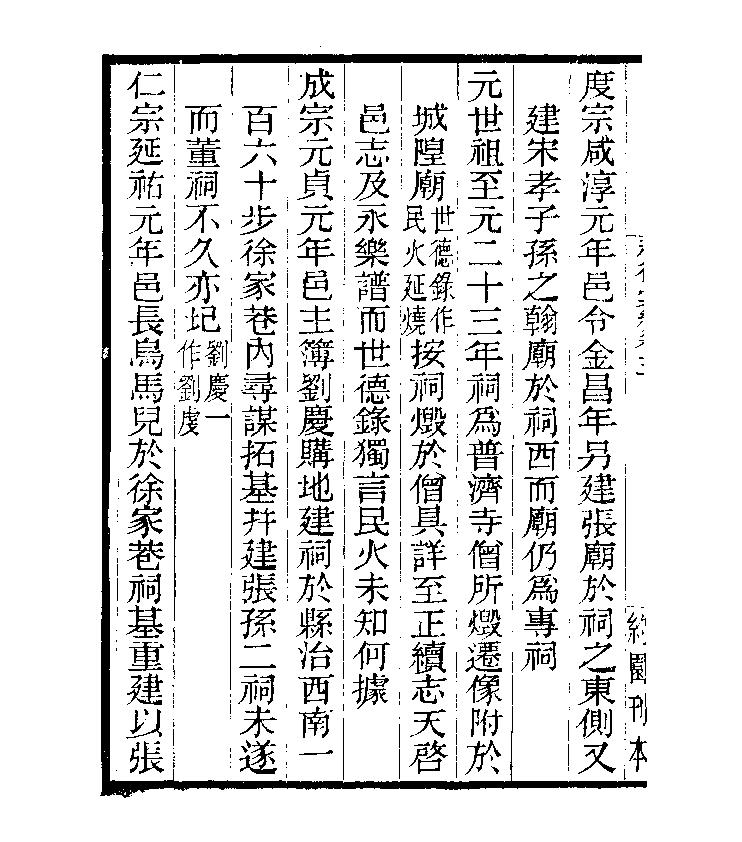 度宗咸淳元年邑令金昌年另建張廟於祠之東側又
建宋孝子孫之翰廟於祠西而廟仍爲專祠
元世祖至元二十三年祠爲普濟寺僧所燬遷像附於
城隍廟世德錄作民火延燒按祠燬於僧具詳至正續志天啓
邑志及永樂譜而世德錄獨言民火未知何據
成宗元貞元年邑主簿劉慶購地建祠於縣治西南一
百六十步徐家巷內尋謀拓基幷建張孫二祠未遂
而董祠不久亦圮劉慶一作劉虔
仁宗延祐元年邑長烏馬兒於徐家巷祠基重建以張
約園刊本